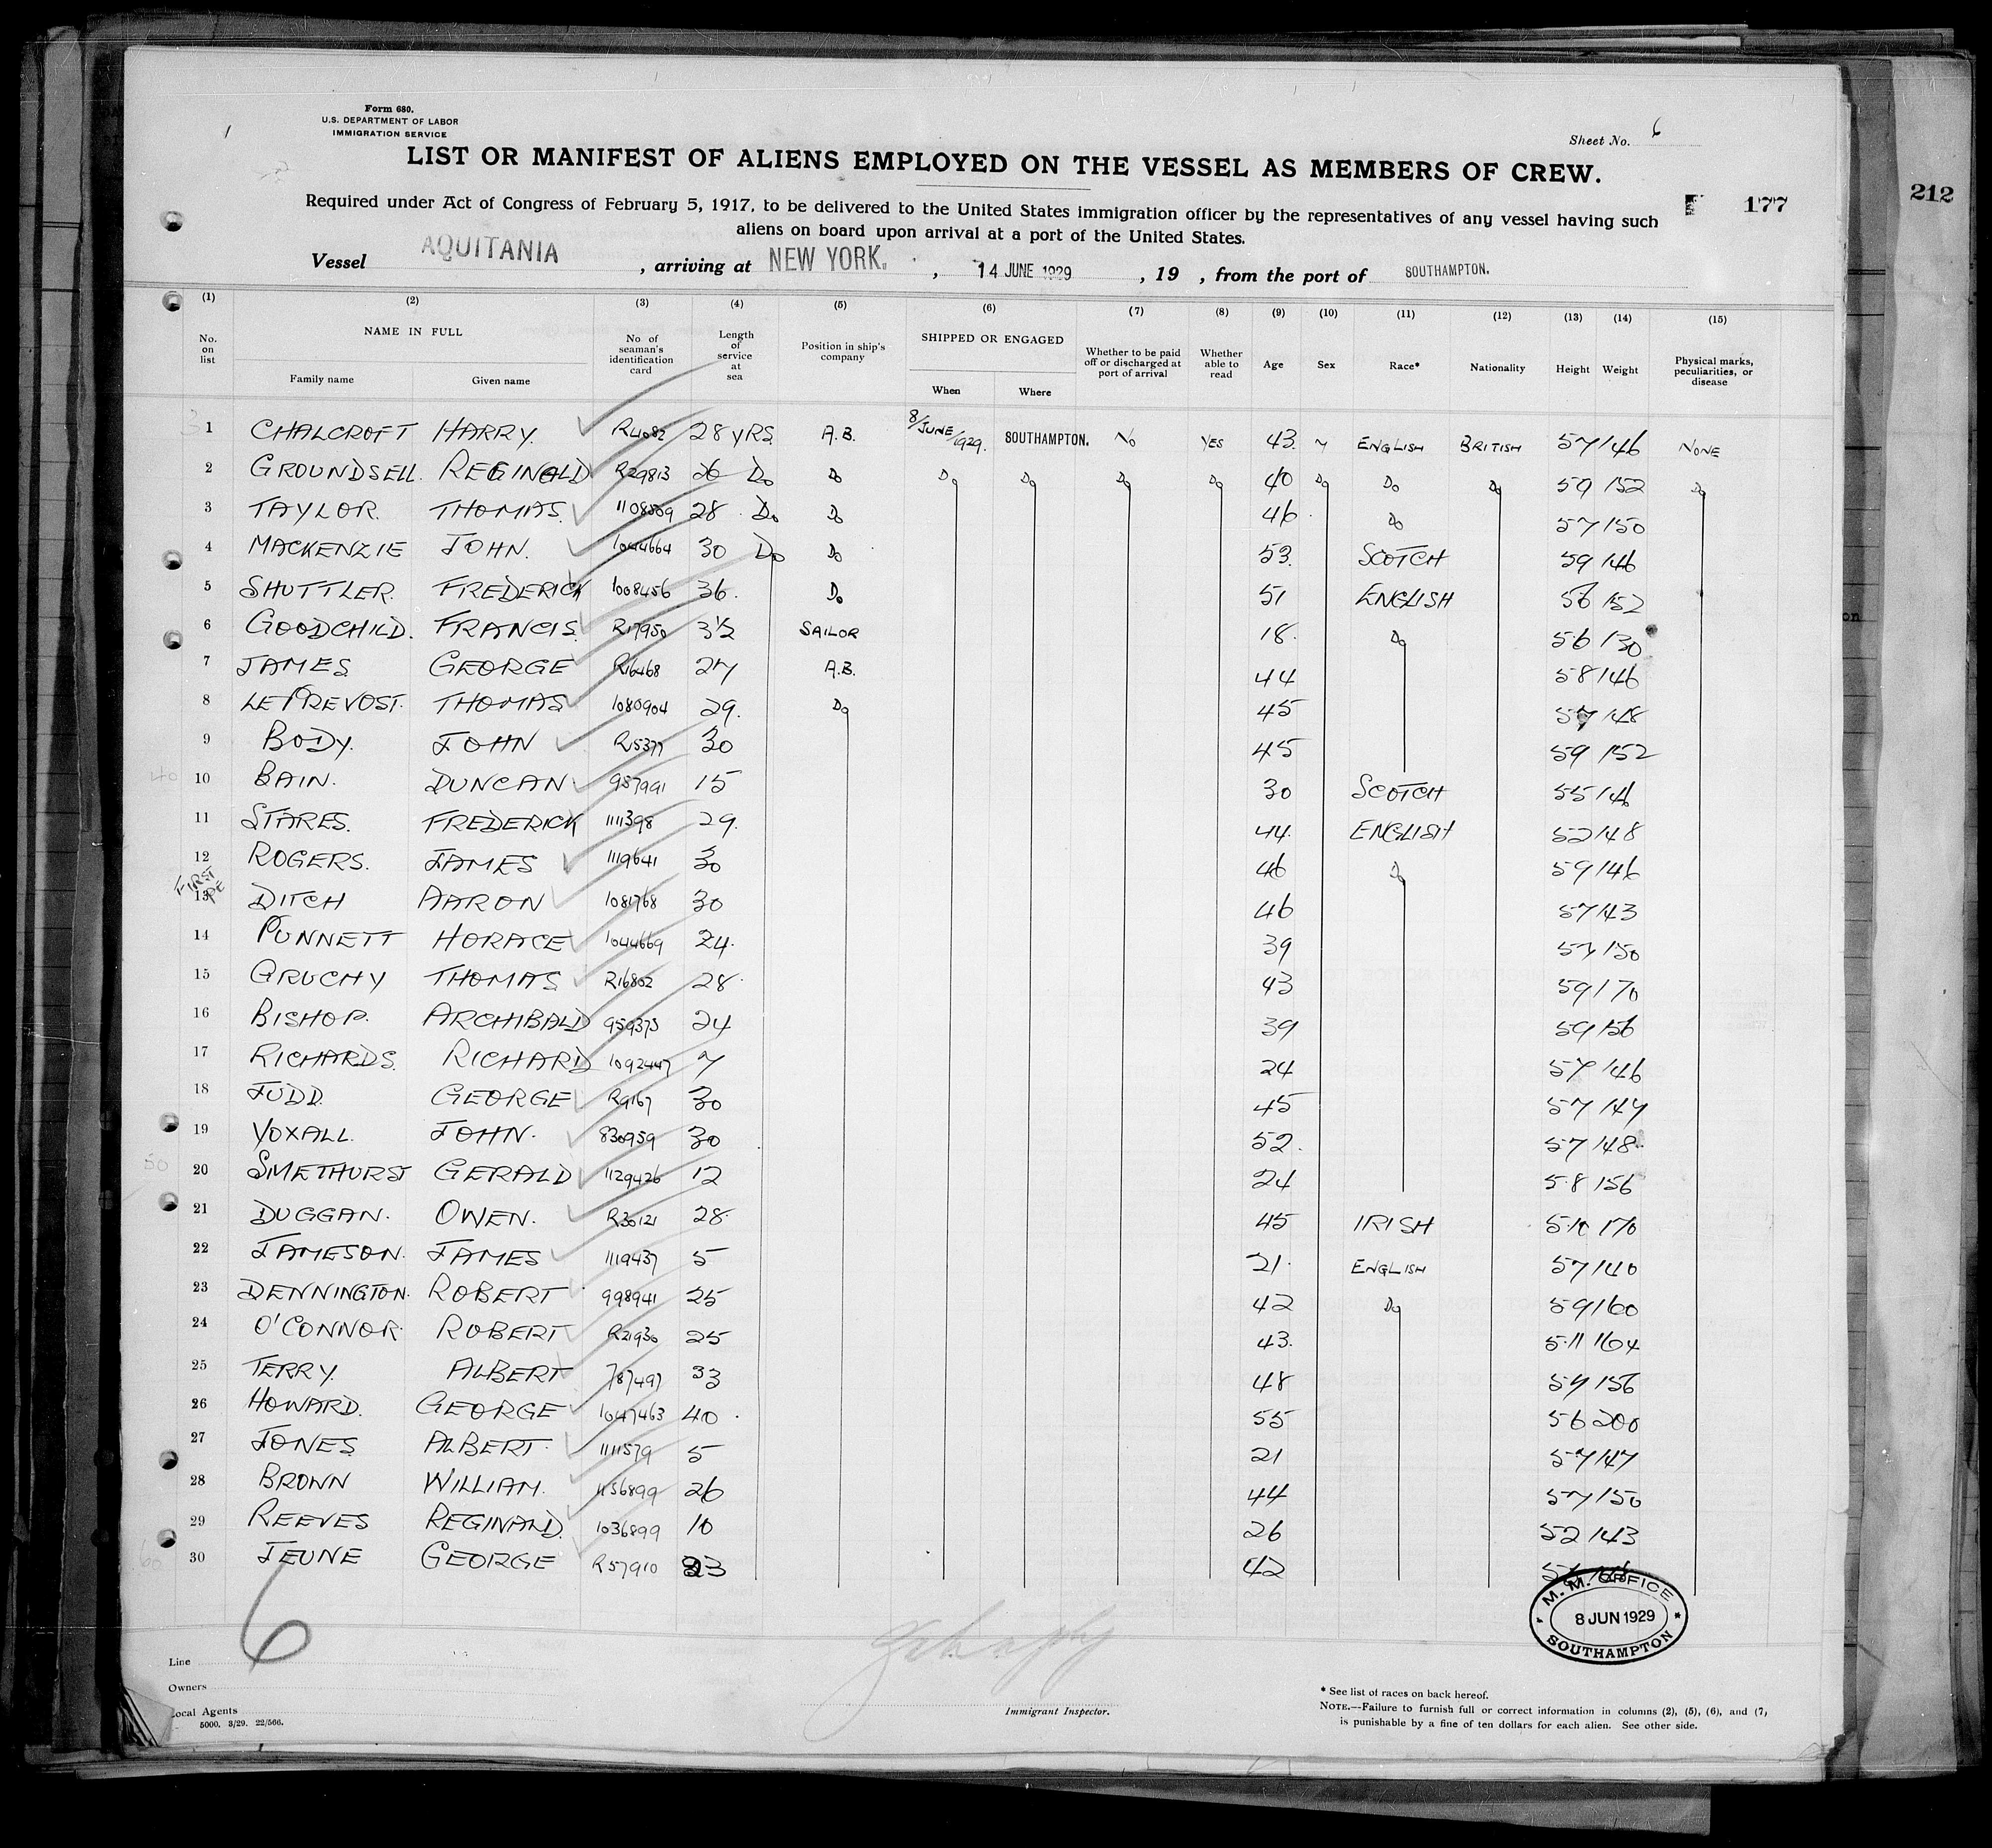 Form 680.
U.S. DEPARTMENT OF LABOR
IMMIGRATION SERVICE
Sheet No. 6
LIST OR MANIFEST OF ALIENS EMPLOYED ON THE VESSEL AS MEMBERS OF CREW.
Required under Act of Congress of February 5, 1917, to be delivered to the United States immigration officer by the representatives of any vessel having such
aliens on board upon arrival at a port of the United States.
177
212
Vessel AQUITANIA, arriving at NEW YORK., 14 JUNE 1929, 19 , from the port of SOUTHAMPTON.
(1) (2) (3) (4) (5) (6) (7) (8) (9) (10) (11) (12) (13) (14) (15)
No. on list NAME IN FULL Family name Given name No of seaman's identification card Length of service at sea Position in ship's company SHIPPED OR ENGAGED When Where Whether to be paid off or discharged at port of arrival Whether able to read Age Sex Race* Nationality Height Weight Physical marks, peculiarities, or disease
1 CHALCROFT HARRY. R4082 28 YRS A.B. 8/JUNE/1929. SOUTHAMPTON. No YES 43. M ENGLISH BRITISH 57 146 NONE
2 GROUNDSELL. REGINALD R29813 26 Do Do Do Do Do Do 40 Do Do Do 59 152 Do
3 TAYLOR. THOMAS. 1108509 28 Do Do 46 Do 57 150
4 MACKENZIE JOHN. 1044664 30 Do Do 53. SCOTCH 59 146
5 SHUTTLER. FREDERICK 1008456 36. Do 51 ENGLISH 56 152
6 GOODCHILD. FRANCIS. R17950 3½ SAILOR 18. Do 56 130
7 JAMES GEORGE R16468 27 A.B. 44 58 146
8 LE PREVOST. THOMAS 1080904 29. Do 45 57 148
9 BODY. JOHN R5377 30 45 59 152
10 BAIN. DUNCAN 987991 15 30 SCOTCH 55 146
11 STARES. FREDERICK 1111398 29. 44. ENGLISH 52 148
12 ROGERS. JAMES 1119641 30 46 Do 59 146
FIRST
13 DITCH AARON 1081768 30 46 57 143
14 PUNNETT HORACE 1044669 24. 39 57 150
15 GRUCHY THOMAS R16802 28. 43 59 170
16 BISHOP. ARCHIBALD 959375 24 39 59 156
17 RICHARDS. RICHARD 1092447 7 24 57 146
18 JUDD. GEORGE R9167 30 45 57 147
19 VOXALL. JOHN. 830959 30 52. 57 148
20 SMETHURST GERALD 1129426 12 24 5.8 156
21 DUGGAN. OWEN. R30121 28. 45 IRISH 5.10 170
22 JAMESON. JAMES 1119437 5 21. ENGLISH 57 140
23 DENNINGTON. ROBERT 998941 25 42 Do 59 160
24 O'CONNOR. ROBERT R21930 25 43. 5.11 164
25 TERRY. ALBERT 787497 33 48 57 156
26 HOWARD. GEORGE 1047463 40. 55 56 200
27 JONES ALBERT. 1111579 5 21 57 147
28 BROWN WILLIAM. 1156899 26 44 57 150
29 REEVES REGINALD. 1036899 10 26 52 143
30 JEUNE GEORGE R57910 23 42
6
M. M. OFFICE
8 JUN 1929
SOUTHAMPTON
Line
Owners
Local Agents
5000. 3/29. 22/566.
Immigrant Inspector.
* See list of races on back hereof.
NOTE.—Failure to furnish full or correct information in columns (2), (5), (6), and (7,
is punishable by a fine of ten dollars for each alien. See other side.